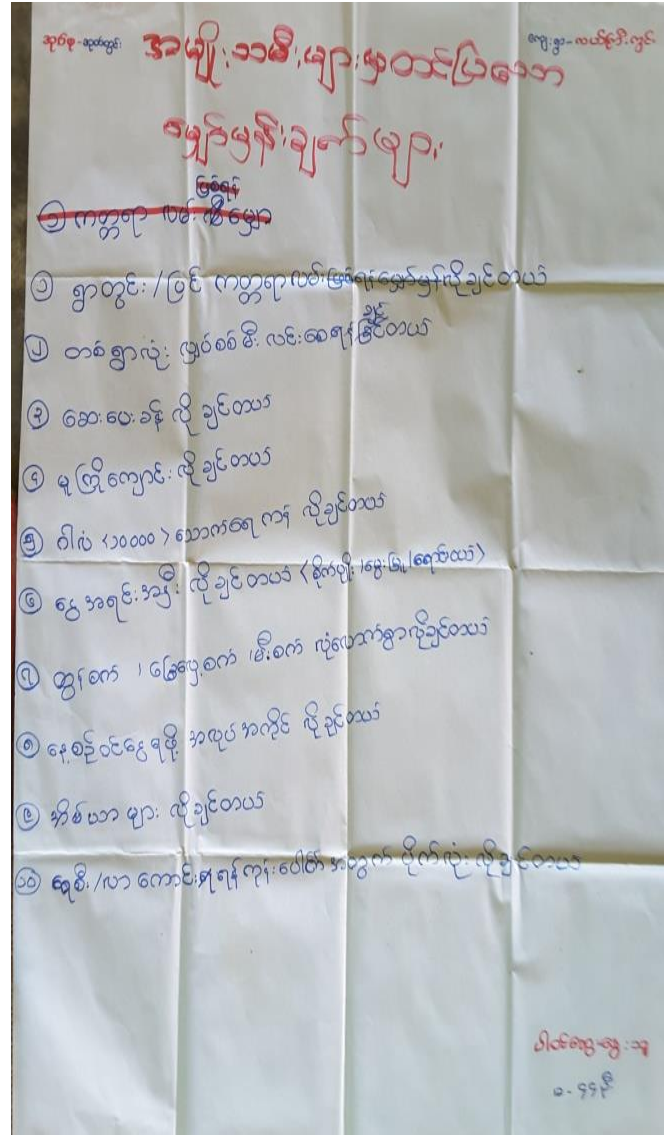 အုပ်စု-ဆုတ်တွင်း
ကျေးရွာ-လယ်ကြီးကွင်း
အမျိုးသမီးများမှတင်ပြသော
မျှော်မှန်းချက်များ
ဖြစ်ရန်
① ကတ္တရာ လမ်း
① ရွာတွင်း/ပြင် ကတ္တရာလမ်းဖြစ်ရန်မျှော်မှန်လိုချင်တယ်
② တစ်ရွာလုံး လျှပ်စစ်မီး လင်းစေရန်ချင်တယ်
③ ဆေးပေးခန်း လိုချင်တယ်
④ မူကြိုကျောင်း လိုချင်တယ်
⑤ ဂါလံ <၁၀၀၀၀> သောက်ရေကန် လိုချင်တယ်
⑥ ငွေအရင်းအနှီး လိုချင်တယ် <စိုက်ပျိုး/မွေးမြူ/ရောင်းဝယ်>
⑦ ထွန်စက် ၊ ခြွေလှေ့စက် ၊မီးစက် လုံလောက်စွာလိုချင်တယ်
⑧ နေ့စဉ်ဝင်ငွေရဖို့ အလုပ်အကိုင် လိုချင်တယ်
⑨ အိမ်သာများ လိုချင်တယ်
⑩ ရေစီး/လာ ကောင်းရန်ကုန်းပေါ်အတွက် ပိုက်လုံး လိုချင်တယ်